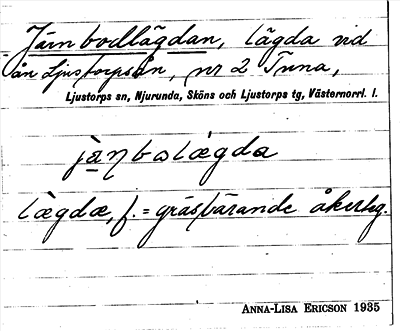 Järnbodlägdan, lägda vid
ån Ljustorpsån, nr 2 Tuna,
Ljustorps sn, Njurunda, Sköns och Ljustorps tg, Västernorrl. l.
jàɳbolàgda
làgdæ, f. = gräsbärande åkerteg.
ANNA-LISA ERICSON 1935